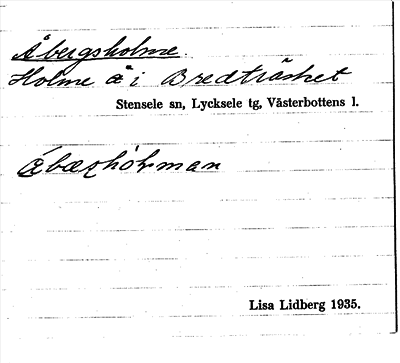 Åbergsholme.
Holme i Bredträsket
Stensele sn, Lycksele tg, Västerbottens l.
Lisa Lidberg 1935.